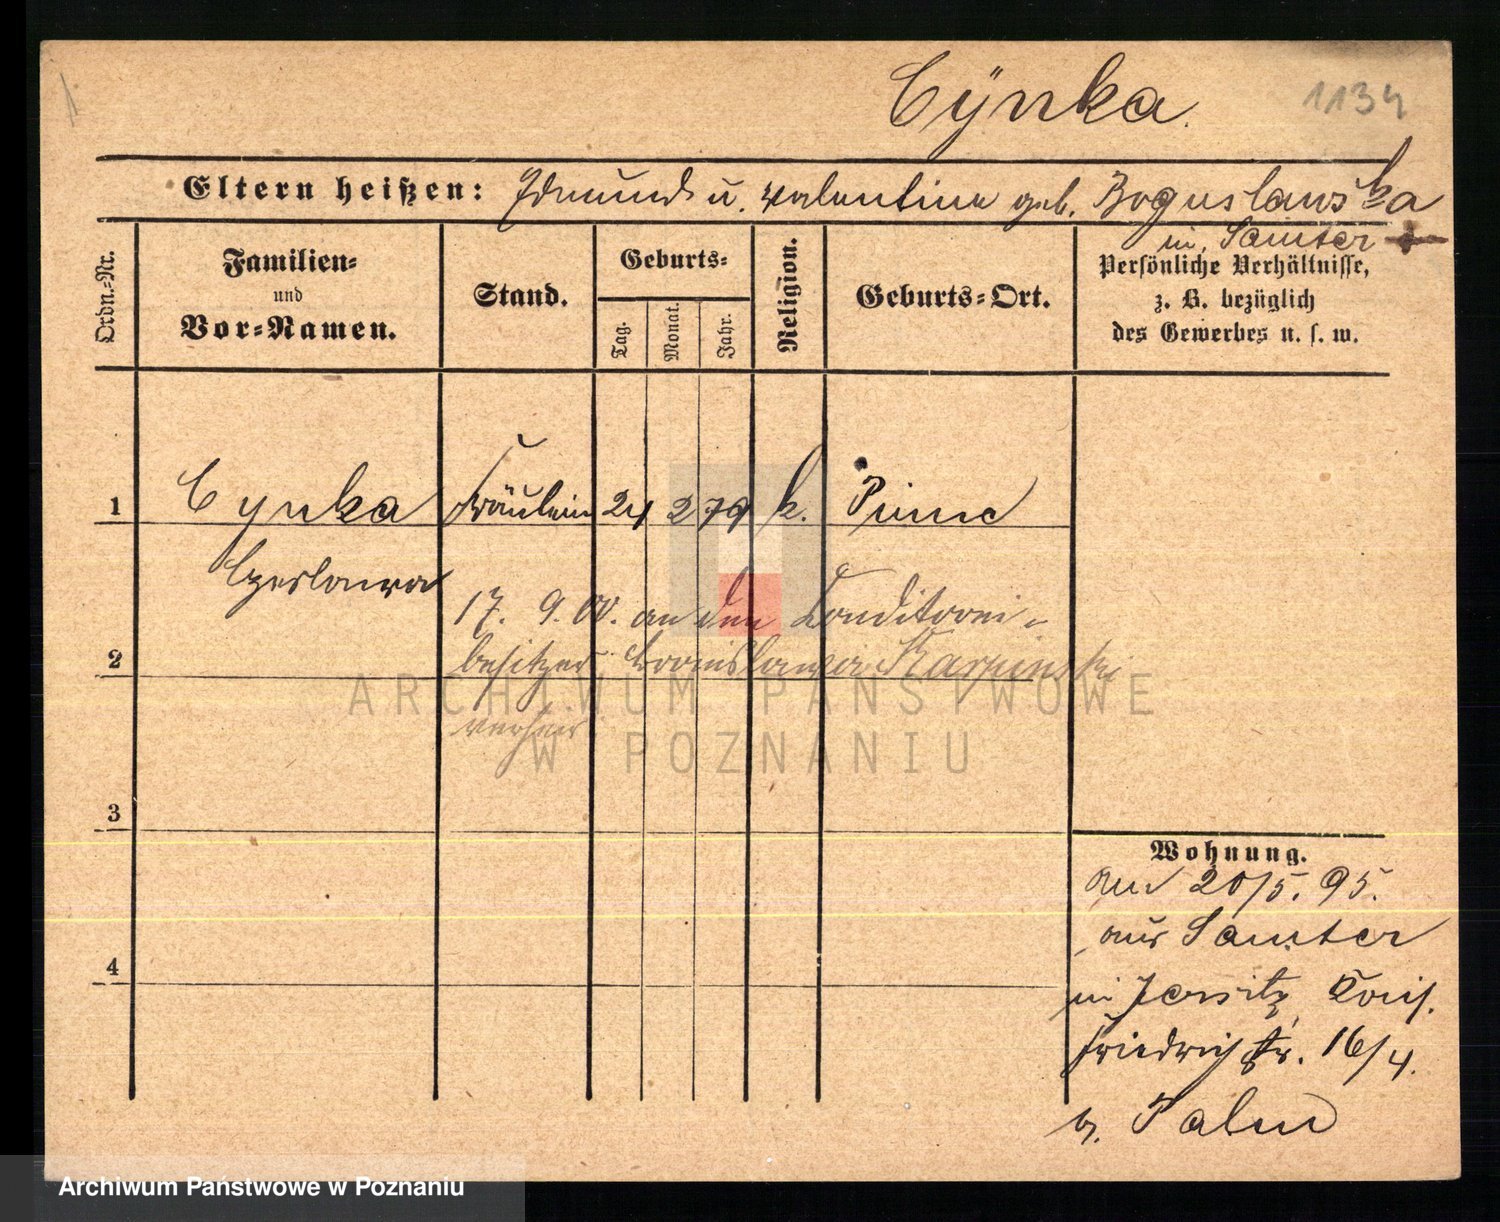 Cÿnka.
1134
Eltern heißen: Edmund u. Valentine geb. Boguslawska
in Samter
Ordn.-Nr.
Familien-
und
Vor-Namen.
Stand.
Geburts-
Tag.
Monat.
Jahr.
Religion.
Geburts-Ort.
Persönliche Verhältnisse,
z. B. bezüglich
des Gewerbes u. s. w.
1 Cynka Fräulein 24 2 79 k. Pinne
Czeslawa
17. 9. 00. an den Conditorei-
2 besitzer Bronislaus Karpinski
verheir.
ARCHIWUM PAŃSTWOWE
W POZNANIU
3
Wohnung.
am 20/5. 95.
aus Samter
4
in Jersitz,
Friedrichstr. 16/4.
b. Palm
Archiwum Państwowe w Poznaniu